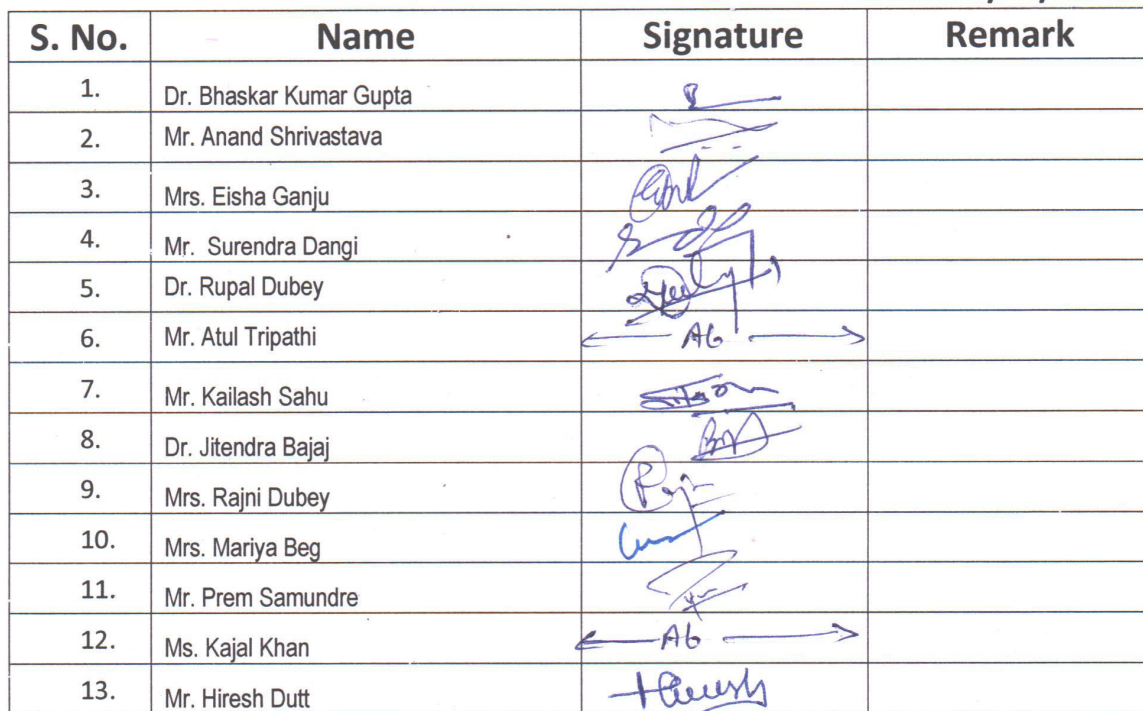 S. No. Name Signature Remark
1. Dr. Bhaskar Kumar Gupta
2. Mr. Anand Shrivastava
3. Mrs. Eisha Ganju
4. Mr. Surendra Dangi
5. Dr. Rupal Dubey
6. Mr. Atul Tripathi Ab
7. Mr. Kailash Sahu
8. Dr. Jitendra Bajaj
9. Mrs. Rajni Dubey
10. Mrs. Mariya Beg
11. Mr. Prem Samundre
12. Ms. Kajal Khan Ab
13. Mr. Hiresh Dutt Hiresh